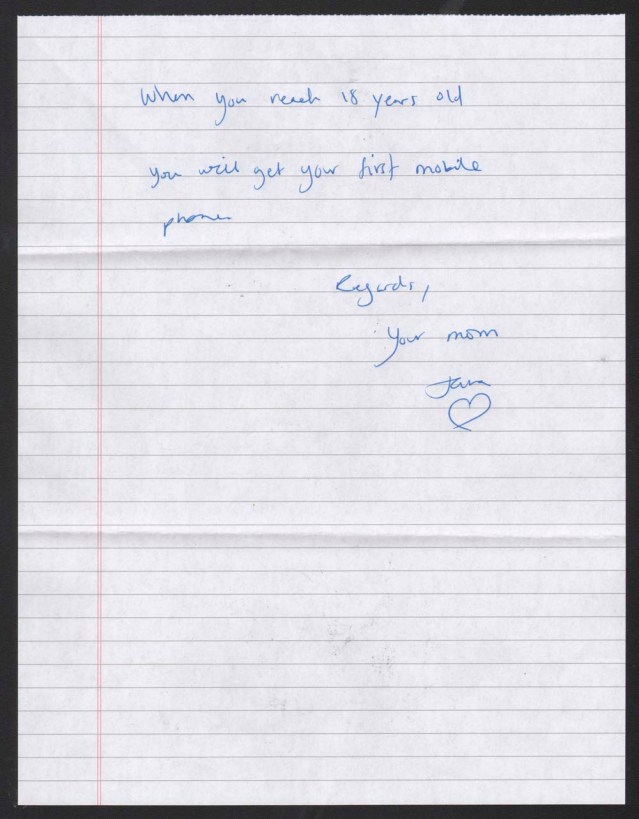 When you reach 18 years old
you will get your first mobile
phone
Regards,
Your mom